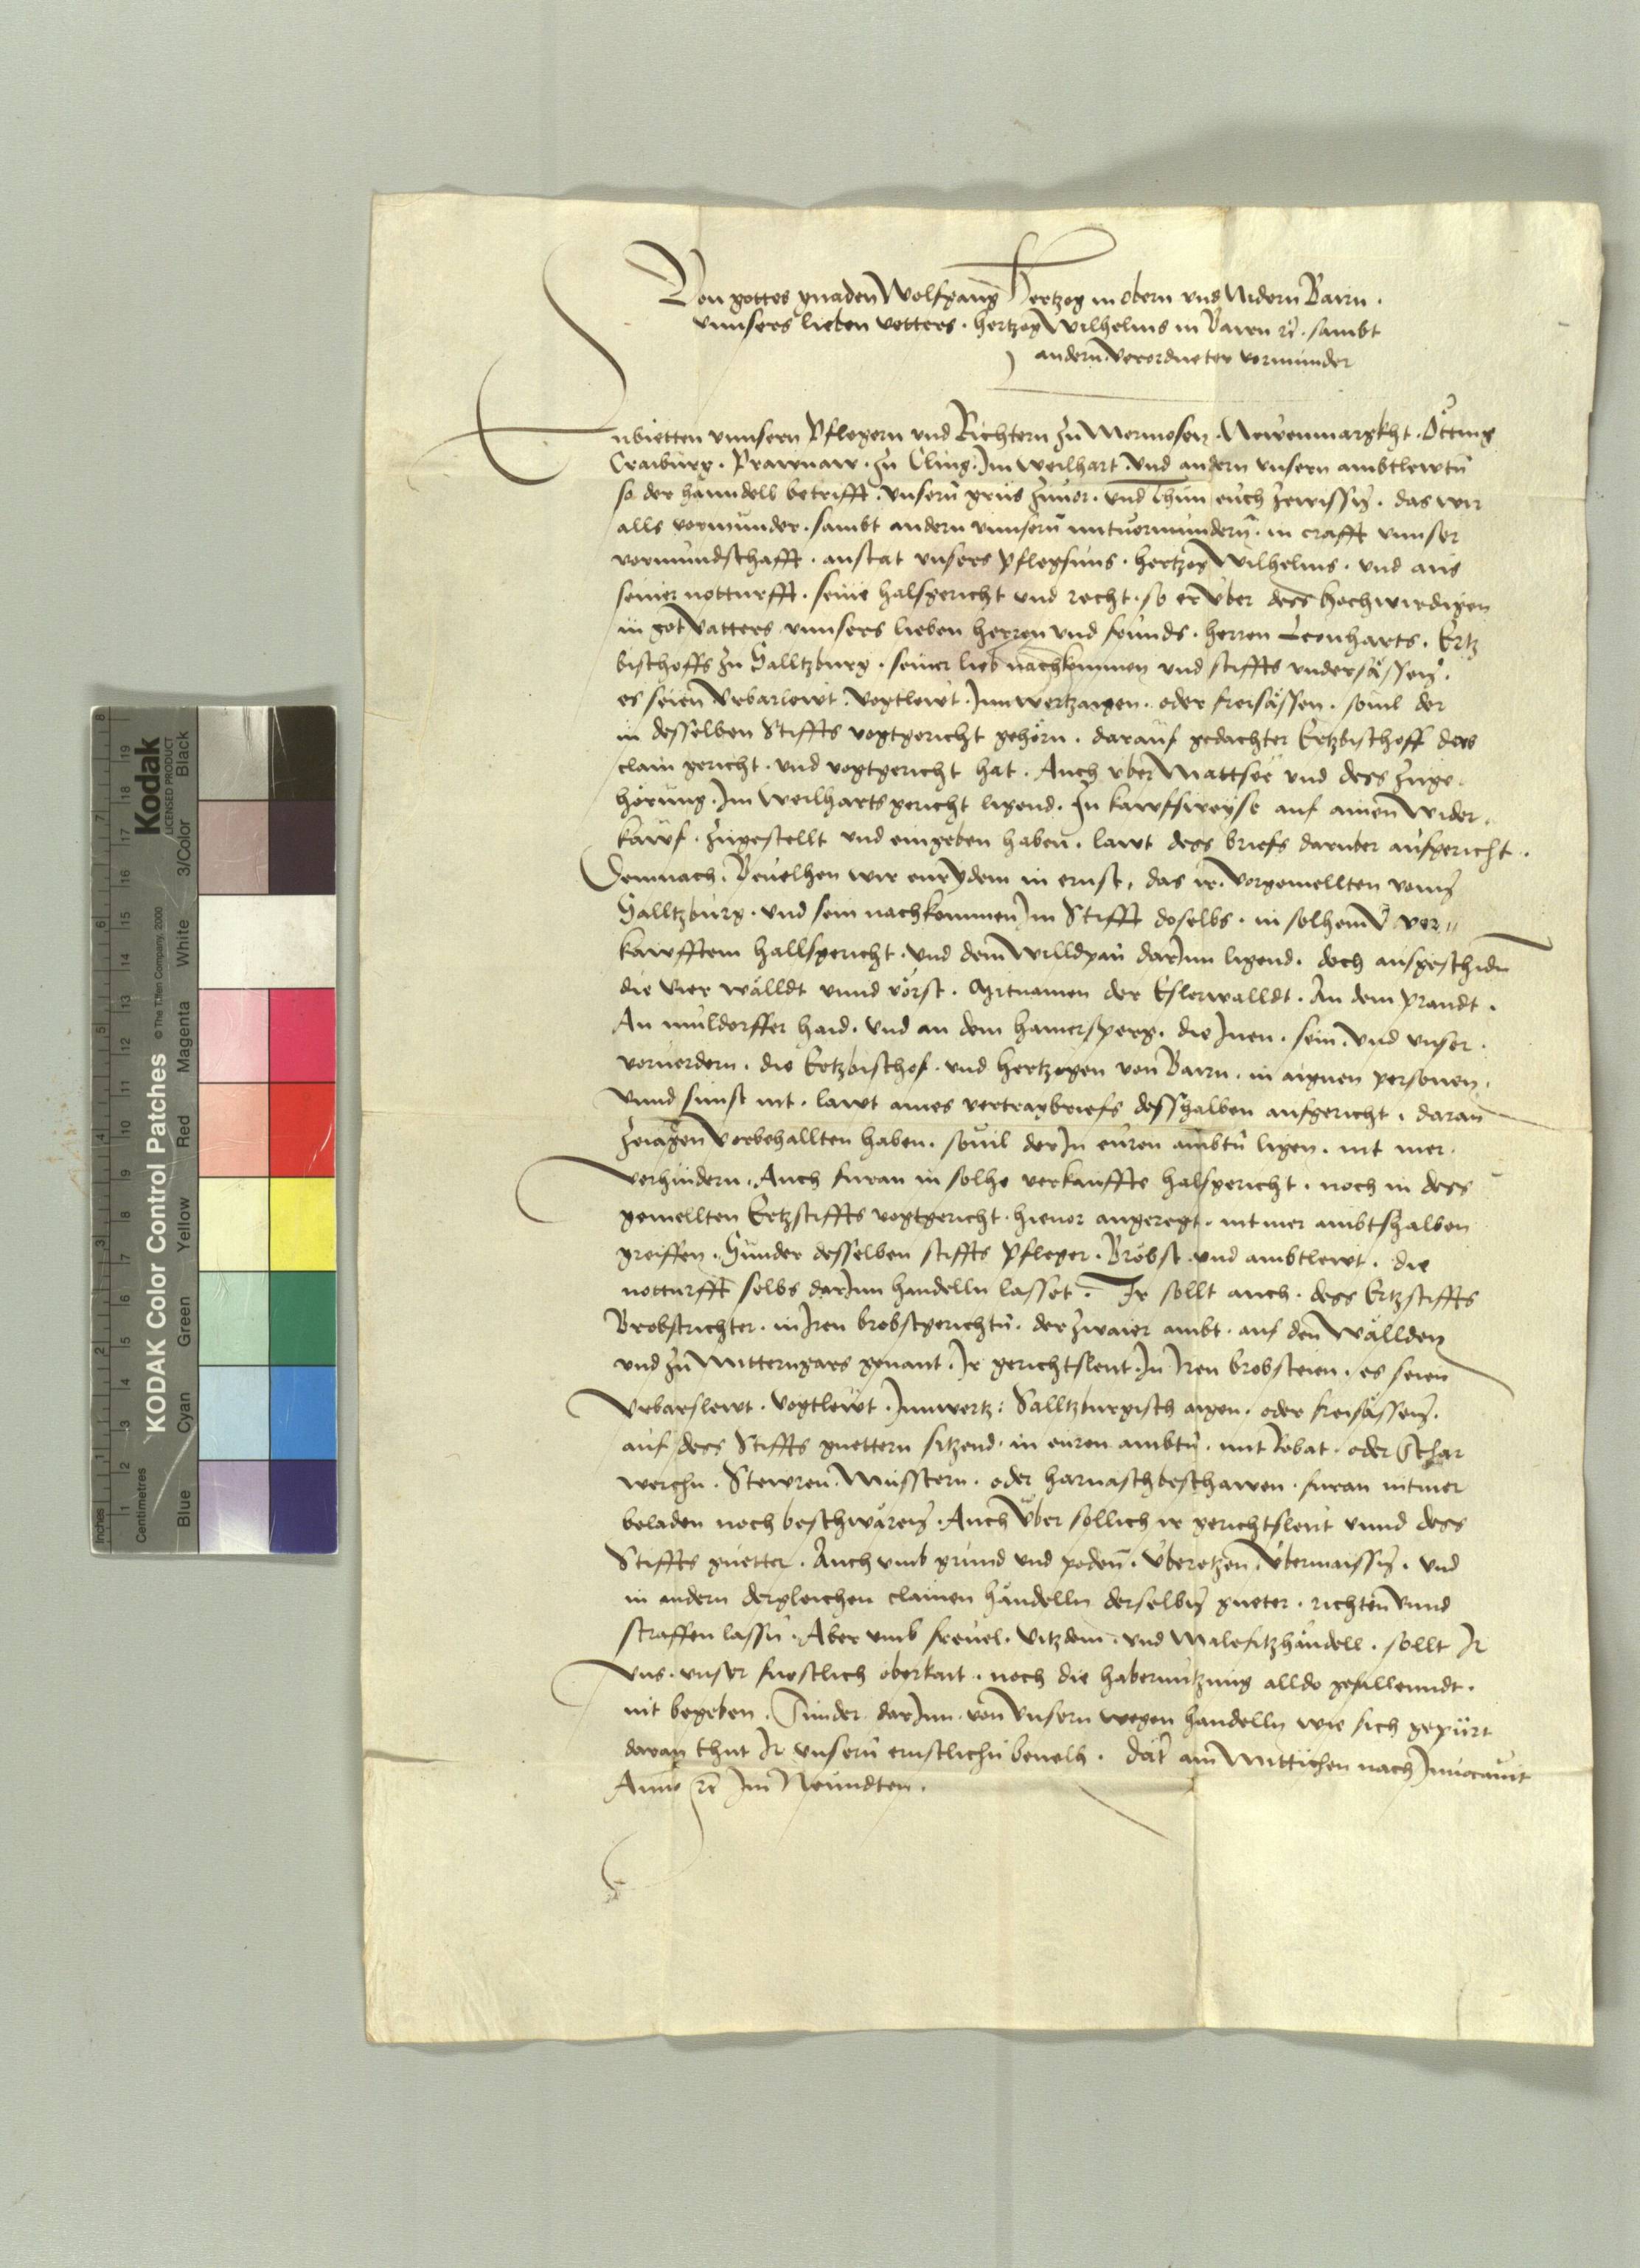 Von gottes gnaden Wolfgang Hertzog in obern und Nidern Bairn.
vnnsers lieben vetters. hertzog Wilhelms in Bairn rc. sambt
andern. verordneter vormunder
Enbietten vnnsern Pflegern vnd Richtern zu Mermosen. Newenmargkht. Ötting
Craiburg. Prawnaw. zu Cling. Im Weilhart. vnd andern vnsern ambtlewtn
so der hanndell betrifft. vnsern grus zuuor. vnd Thun euch zewissen. das wir
alls vormunder. sambt andern vnnsern mituormundern. in crafft vnnser
vormundschafft. anstat vnsers Pflegsuns. hertzog Wilhelms. vnd aus
seiner notturfft. seine halsgericht vnd recht. so er vber dess hochwirdigen
in got vatters vnnsers lieben herren vnd freunds. herren Leonharts. Ertz
bischoffs zu Salltzburg. seiner lieb nachkommen vnd stiffts vndersässen.
es seien Vrbarlewt. Vogtlewt. Innwertzaigen. oder freisässen. souil der
in desselben Stiffts vogtgericht gehörn. darauf gedachter Ertzbischoff das
clain gericht. vnd vogtgericht hat. Auch vber Mattsee vnd dess zuge
hörung. Im Weilhartsgericht ligend. In kawfsweyse auf ainen Wider
kawf. zugestellt vnd eingeben haben. lawt dess briefs darvber aufgericht.
Demnach. Beuelhen wir eur ydem in ernst, das ir. vorgemellten vonn
Salltzburg. vnd sein nachkommen Im Stifft doselbs. in solhem ver
kawfftem hallsgericht. vnd dem Willdpan darInn ligend. doch ausgeschidn
die Vier wälldt vnnd vörst. Mitnamen der Eslerwalldt. An dem prandt.
An muldorffer haid. vnd an dem hamersperg. die Inen. sein. vnd vnser
voruordern. die Ertzbischof. vnd hertzogen von Bairn. in aignen personen.
vnnd sunst nit. lawt aines vertragbriefs desshalben aufgericht. daran
zeiagen vorbehallten haben. souil der In euren ambtn ligen. nit mer.
verhindern. Auch furan in solhe verkauffte halsgericht. noch in dess
gemellten Ertzstiffts vogtgericht. hieuor angeregt. nit mer ambtshalben
greiffen. Sunder desselben stiffts Pfleger. Bröbst. vnd ambtlewt. die
notturfft selbs darInn handelln lasset. Ir sollt auch. dess Ertzstiffts
Brobstrichter. in Iren brobstgerichtn. der zwaier ambt. auf den Wällden
vnd zu Mitterngars genant. Ir gerichtsleut In Iren brobsteien. es seien
Vrbarslewt. Vogtlewt. Innwertz: Salltzburgisch aigen. oder freisässen.
auf dess Stiffts guettern sitzend. in euren ambtn. mit Robat. oder Schar
werchn. Stewren. Musstern. oder harnaschbeschawen. furan nitmer
beladen noch beschwären. Auch vber sollich ir gerichtsleut vnnd dess
Stiffts guetter. Auch vmb grund vnd poden. Vberetzen. Vbermaissen. vnd
in andern dergleichen clainen händelln derselben gueter. richten vnnd
straffen lassn. Aber vmb freuel. Vitzdom. vnd Malefitzhändell. sollt Ir
vns. vnser furstlich oberkait. noch die habernutzung alldo gefallenndt.
nit begeben. Sunder darInn. von Vnsern wegen handelln wie sich gepürt
daran thut Ir vnsern ernstlichn beuelh. Dat am Mittichen nach Inuocauit
Anno rc Im Neundten.
KODAK Color Control Patches
© The Tiffen Company, 2000
Kodak
LICENSED PRODUCT
Inches
Centimetres
Blue Cyan Green Yellow Red Magenta White 3/Color Black
1 2 3 4 5 6 7 8
1 2 3 4 5 6 7 8 9 10 11 12 13 14 15 16 17 18 19